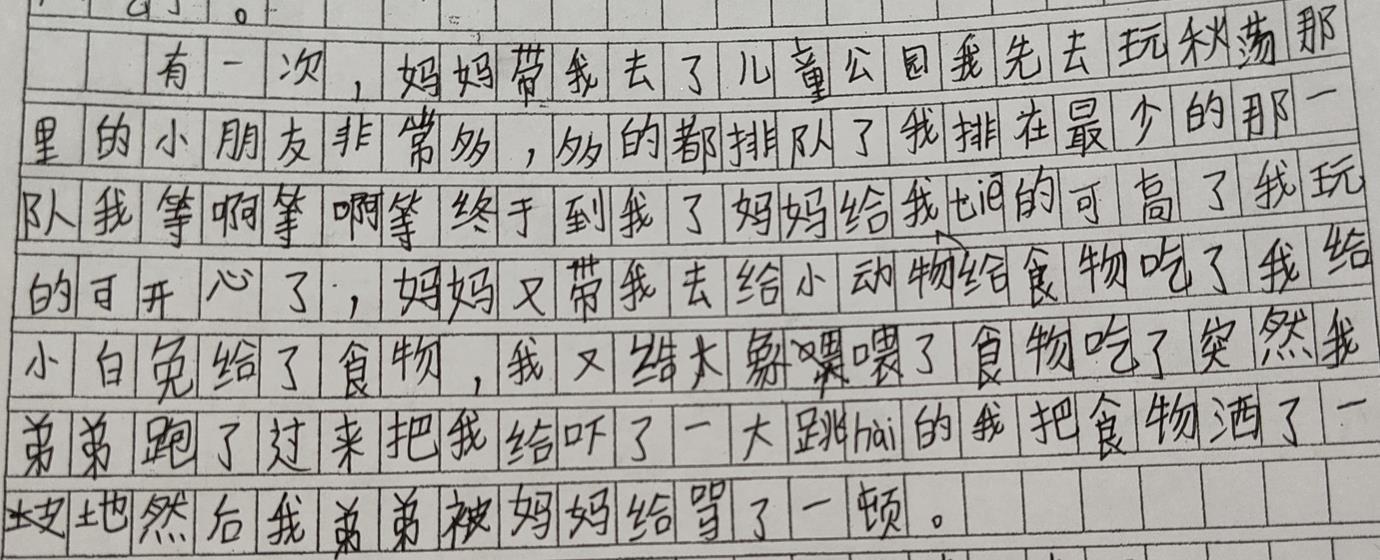 。
有一次，妈妈带我去了儿童公园我先去玩秋荡那
里的小朋友非常多，多的都排队了我排在最少的那一
队我等啊等啊等终于到我了妈妈给我tiě的可高了我玩
的可开心了，妈妈又带我去给小动物给食物吃了我给
小白免给了食物，我又给大象喂了食物吃了突然我
弟弟跑了过来把我给吓了一大跳hài的我把食物洒了一
地然后我弟弟被妈妈给骂了一顿。